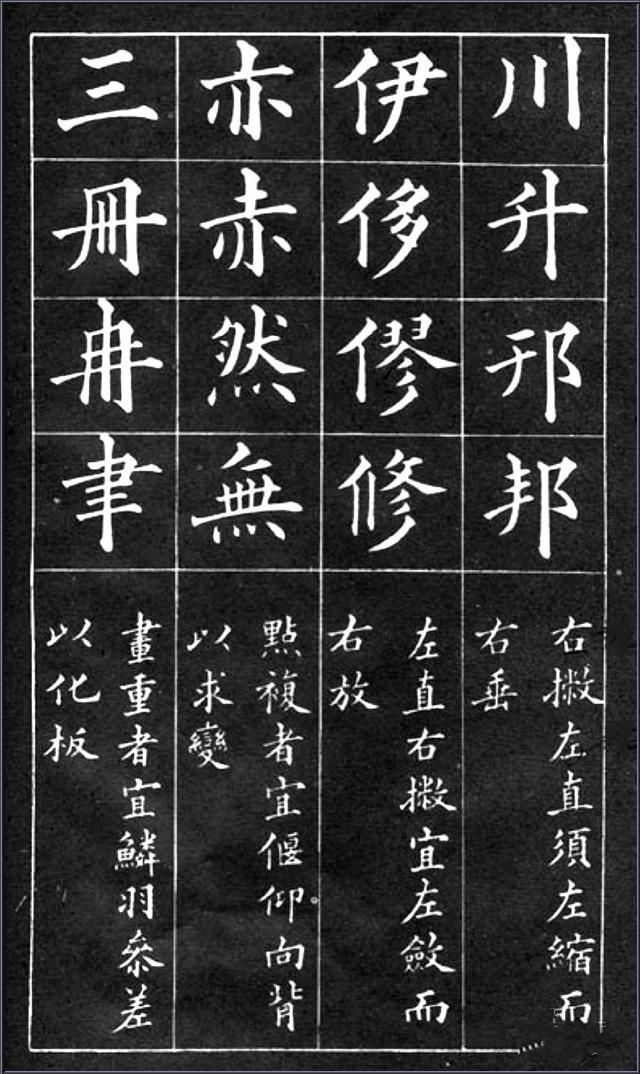 川升邢邦
右撇左直須左縮而
右垂
伊侈僇修
左直右撇宜左斂而
右放
亦赤然無
點複者宜偃仰向背
以求變
三冊冉聿
畫重者宜鱗羽叅差
以化板